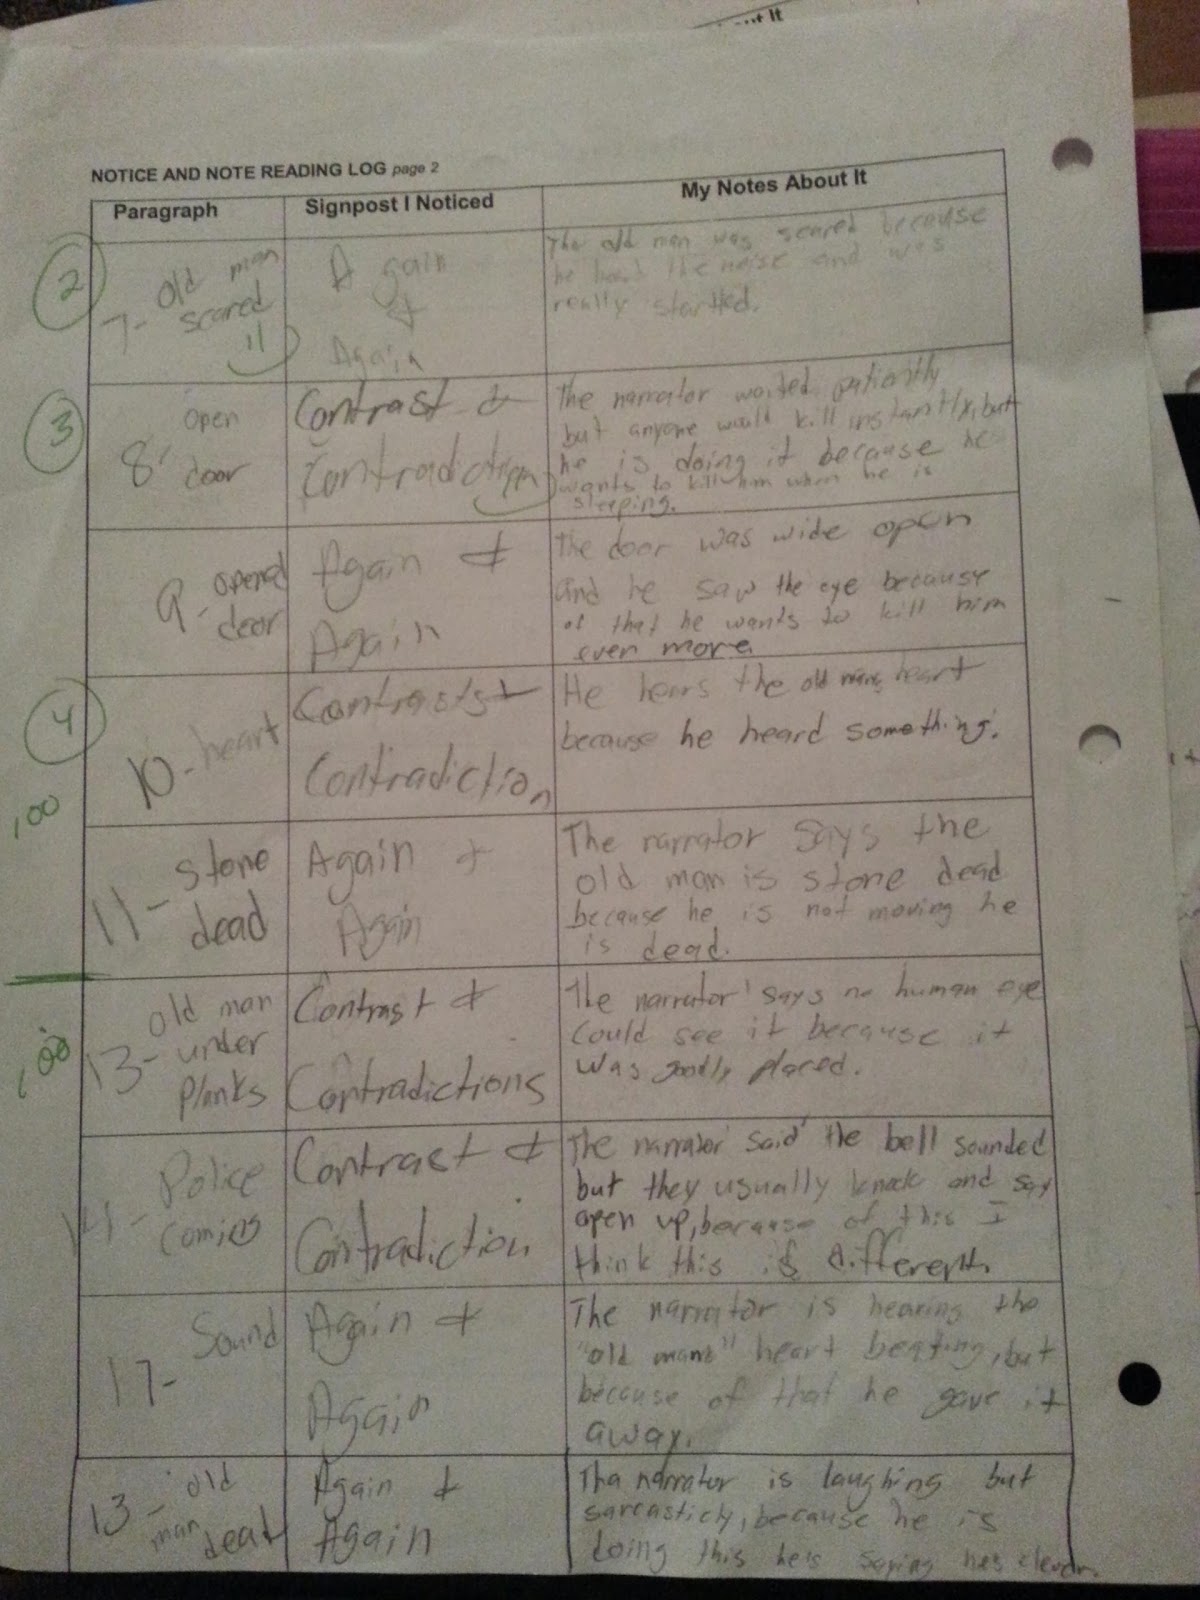 ...t It
NOTICE AND NOTE READING LOG page 2
Paragraph
Signpost I Noticed
My Notes About It
2
7- Old man
scared
Again
&
Again
The old man was scared because
he heard the noise and was
really startled.
3
8- open
door
Contrast &
Contradiction
The narrator waited patiently
but anyone would kill instantly, but
he is doing it because he
wants to kill him when he is
sleeping.
9- opened
door
Again &
Again
The door was wide open
and he saw the eye because
of that he wants to kill him
even more.
4
100
10- heart
Contrasts &
Contradiction
He hears the old mans heart
because he heard something.
11- stone
dead
Again &
Again
The narrator says the
old man is stone dead
because he is not moving he
is dead.
100
13- old man
under
planks
Contrast &
Contradictions
The narrator says no human eye
could see it because it
was goodly placed.
14- Police
coming
Contrast &
Contradiction
The narrator said the bell sounded
but they usually knock and say
open up, because of this I
think this is different.
17- Sound
Again &
Again
The narrator is hearing the
"old mans" heart beating, but
because of that he gave it
away.
13- old
man dead
Again &
Again
Tha narrator is laughing but
sarcasticly, because he is
doing this he's saying hes clever.